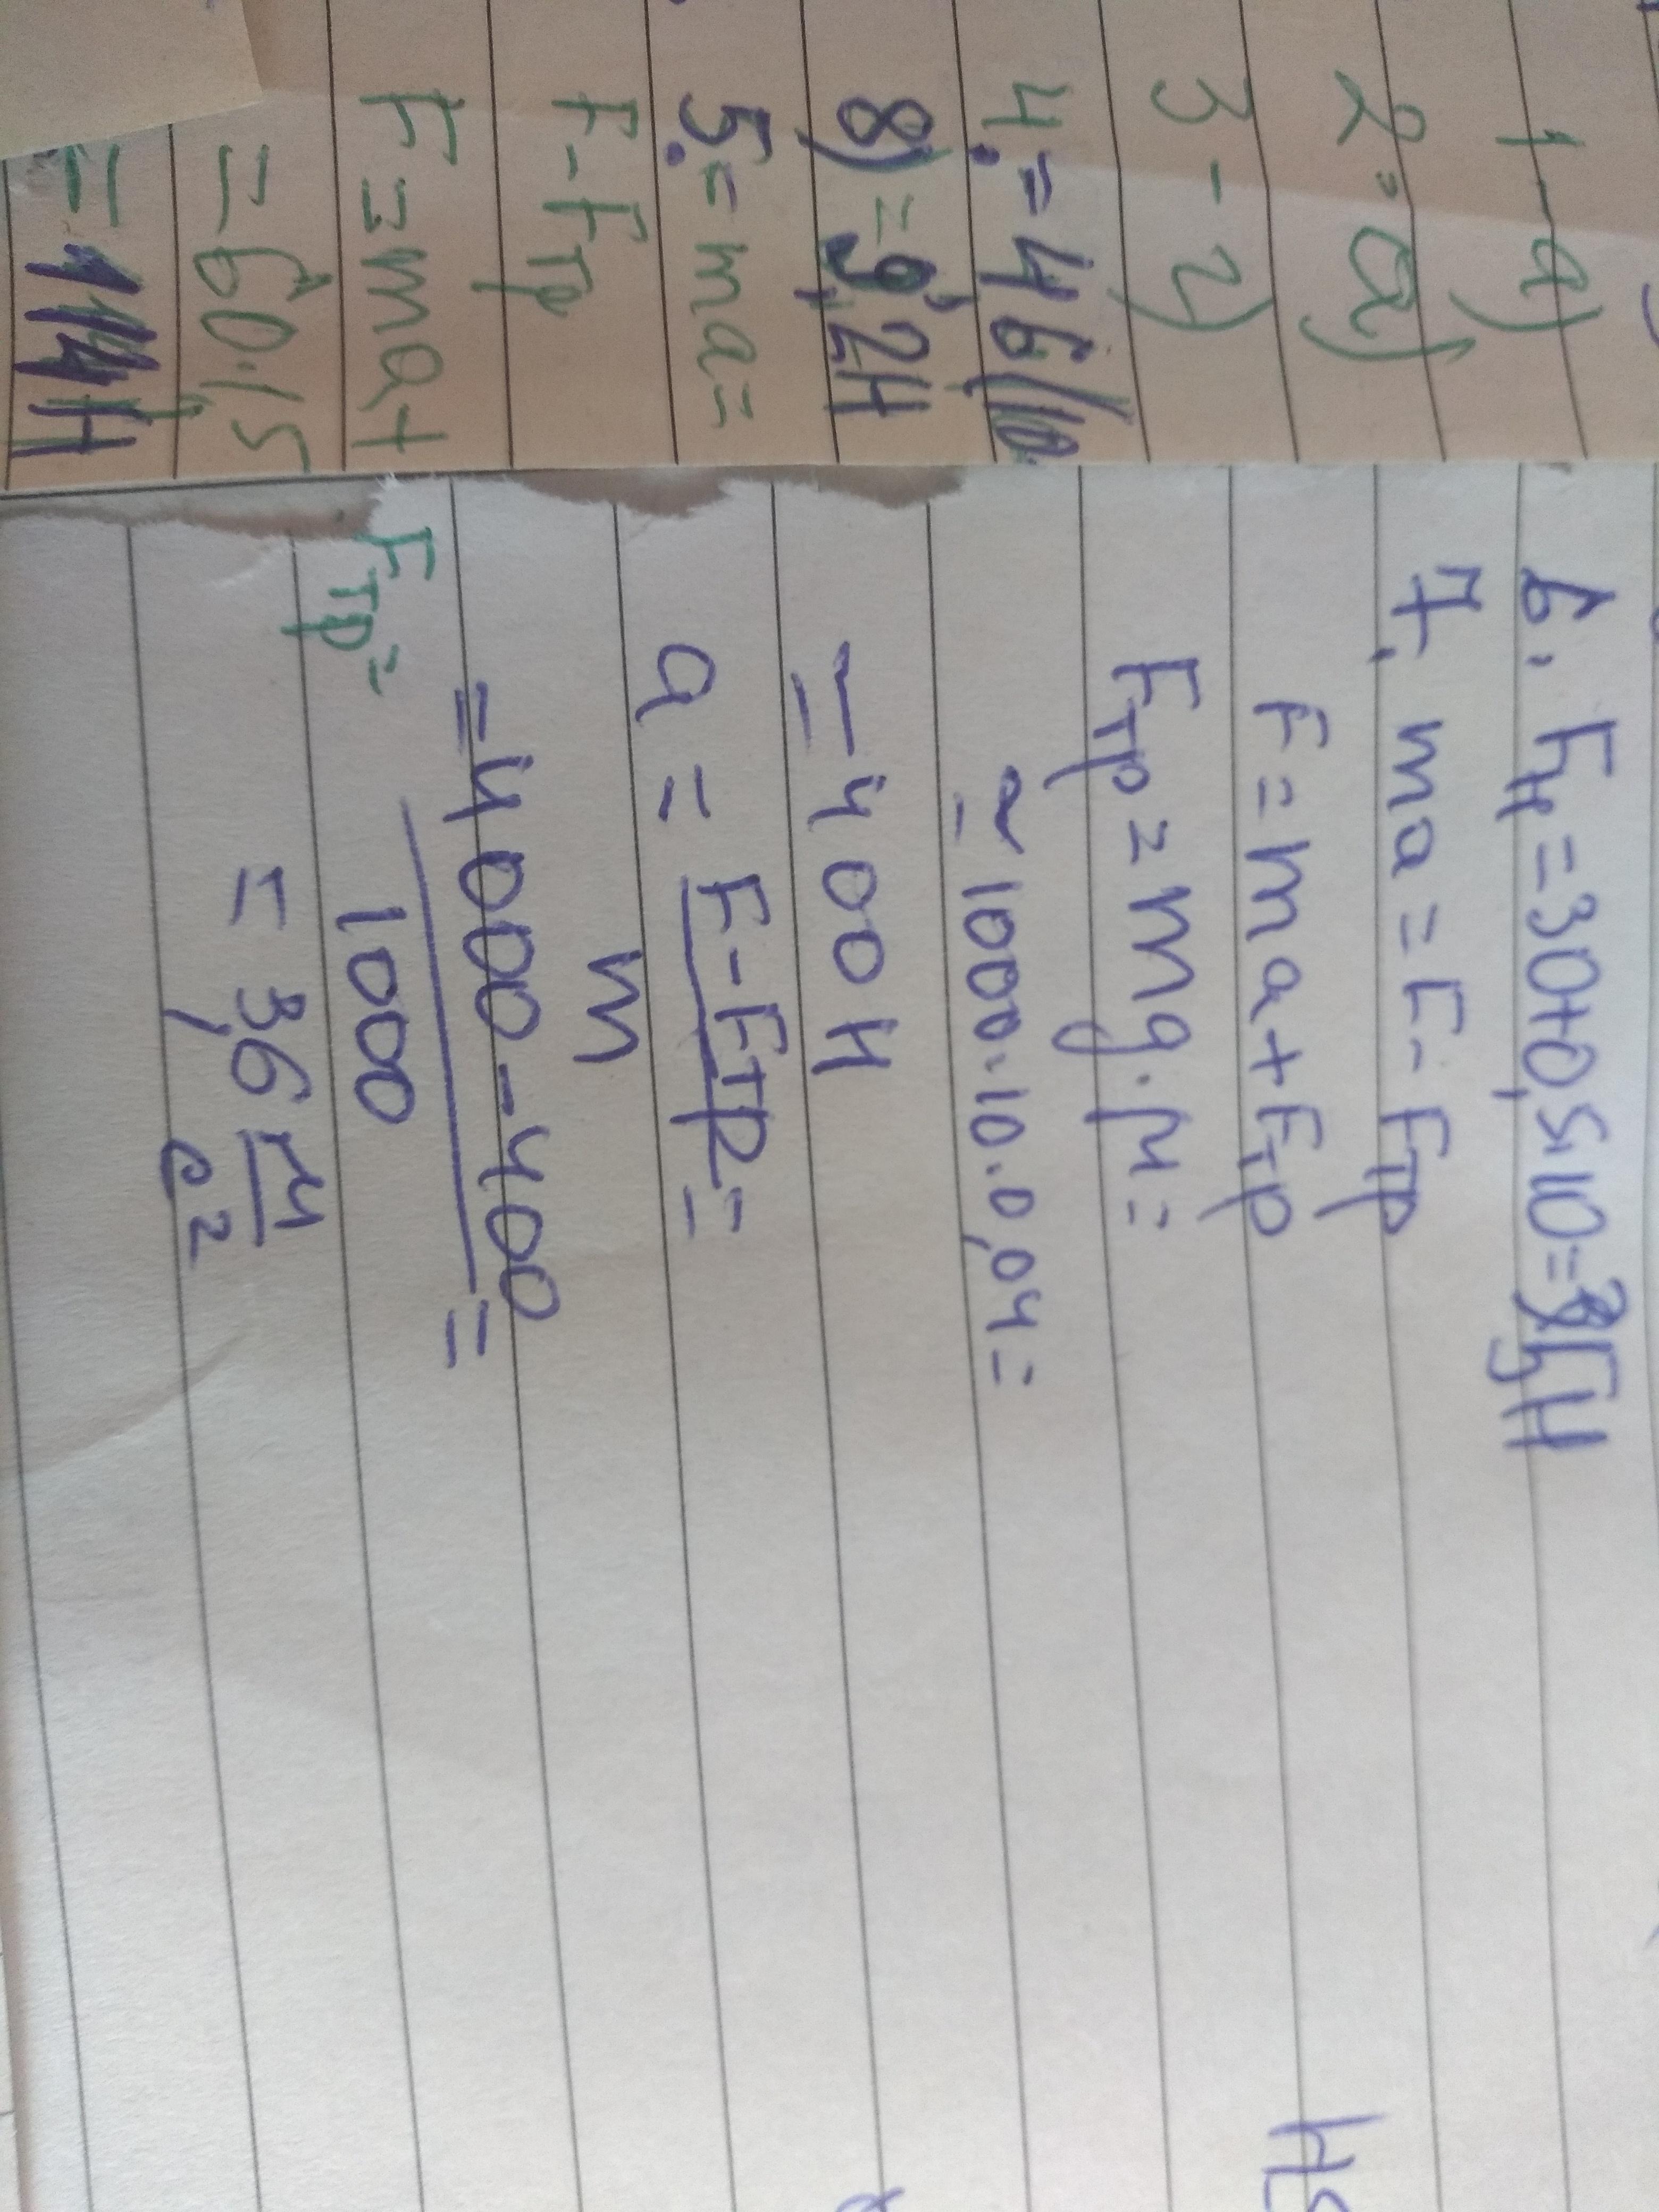 1-а)
2-а)
3-2)
4. = 46
8) = 9,2Н
5. = ma =
F-Fтр
F = ma +
= 60.1,5
= 114Н
6. = 30+0,5·10=35Н
7. ma = F-Fтр
F = ma + Fтр
Fтр = mg·μ =
= 1000·10·0,04=
= 400 Н
a = F-Fтр =
m
= 4000-400 =
1000
= 3,6 м
с²
Fтр=